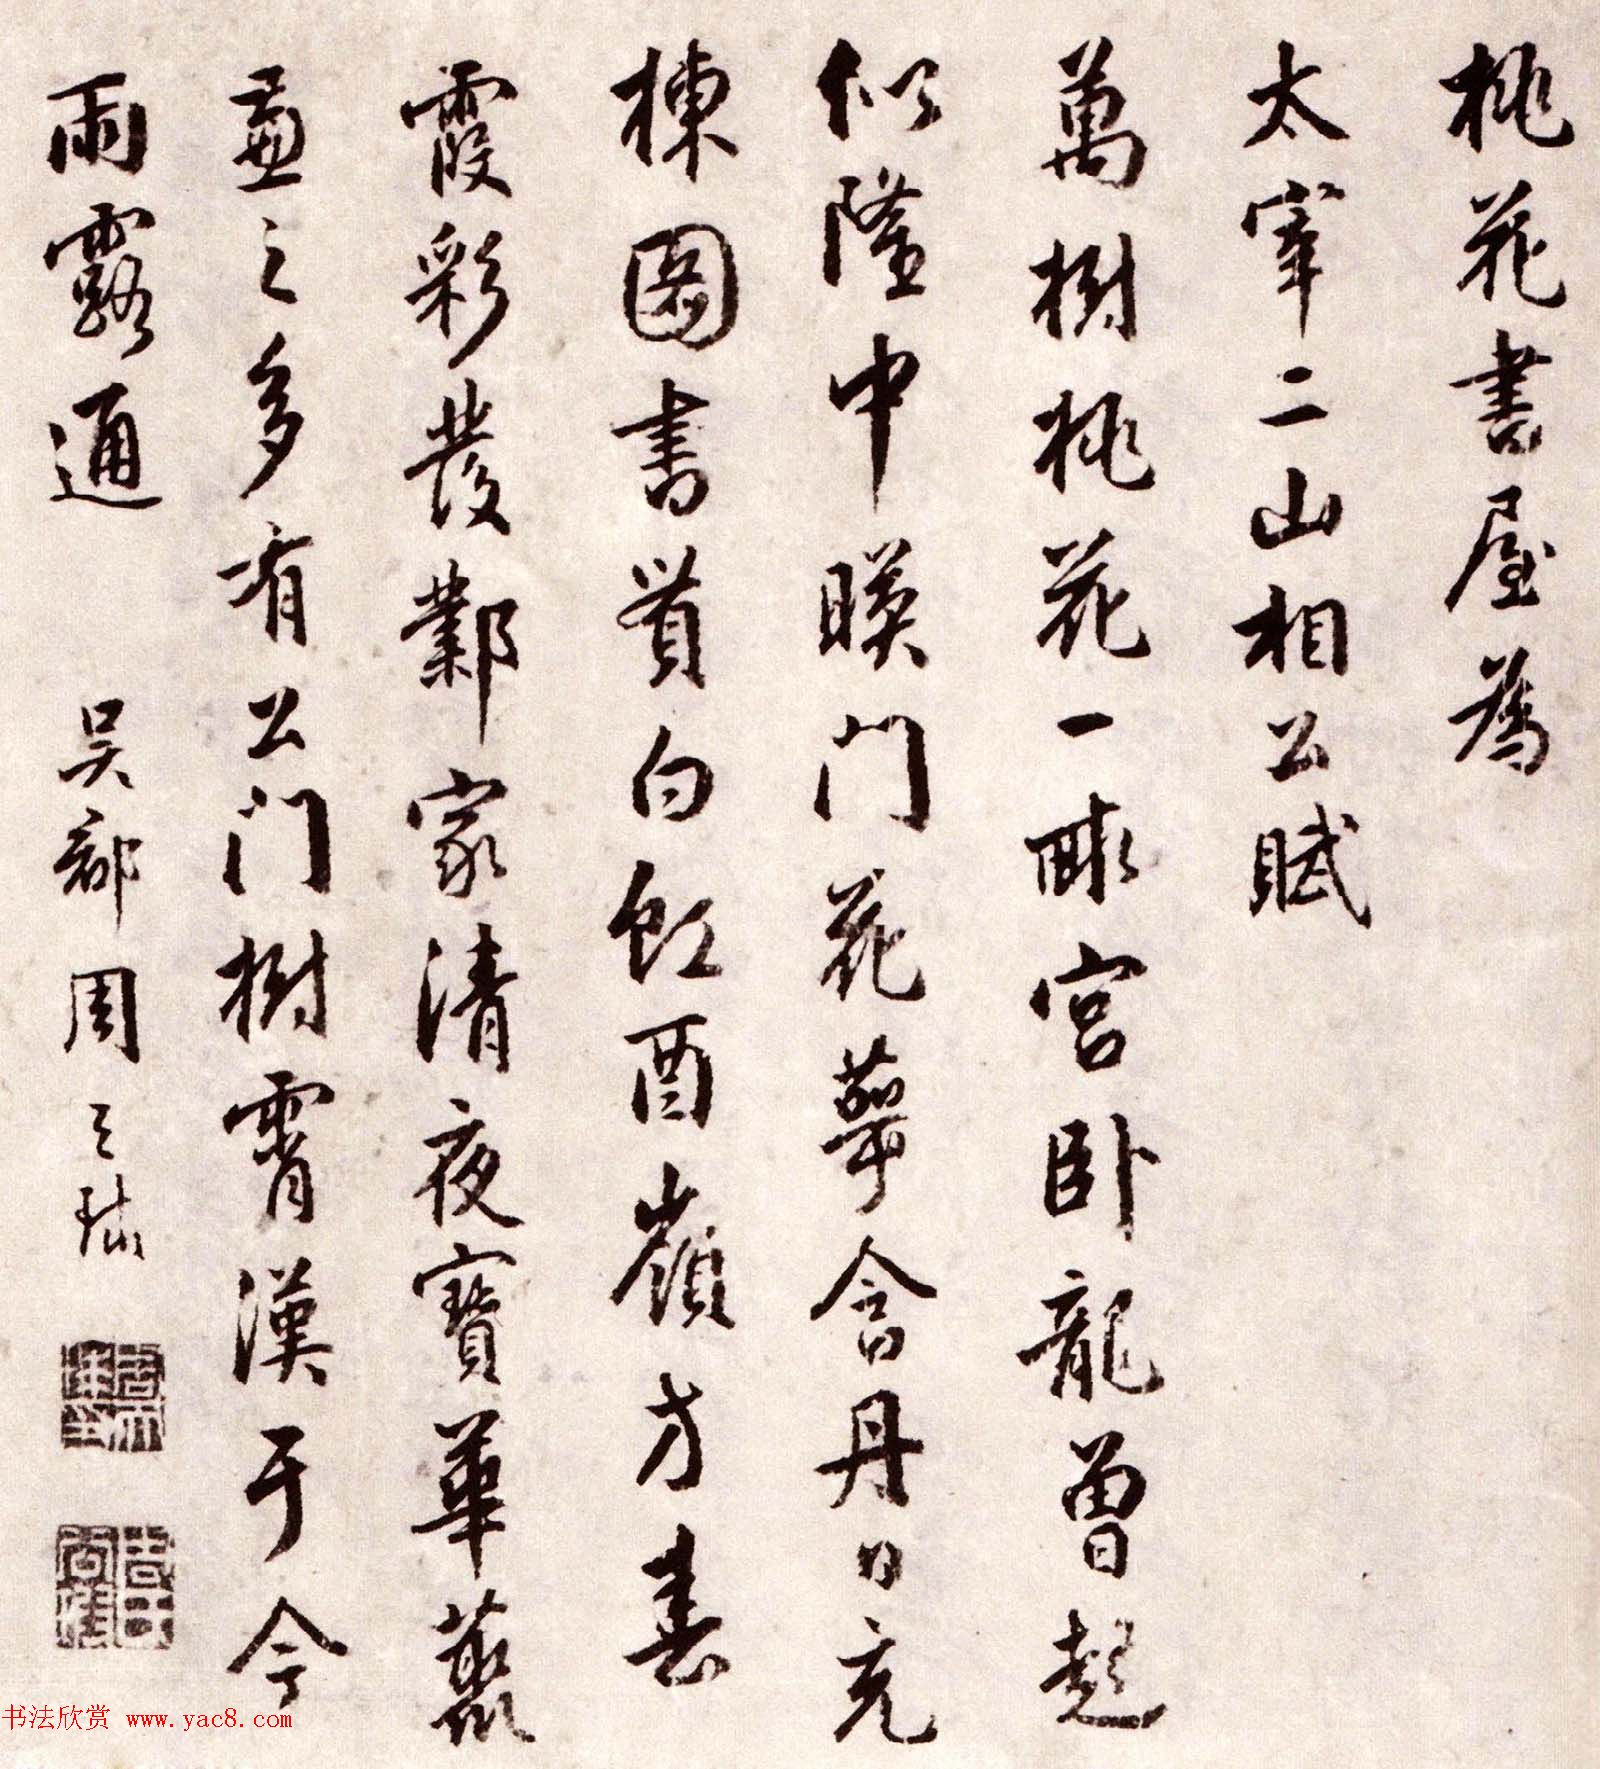 桃花書屋為
太宰二山相公賦
萬樹桃花一畝宮卧龍曾起
似隆中暎門花萼含丹日充
棟圖書貫白虹酉嶺方春
霞彩發鄴家清夜寶華叢
孟之多有公門樹霄漢于今
雨露通
吳郡周天球
书法欣赏 www.yac8.com